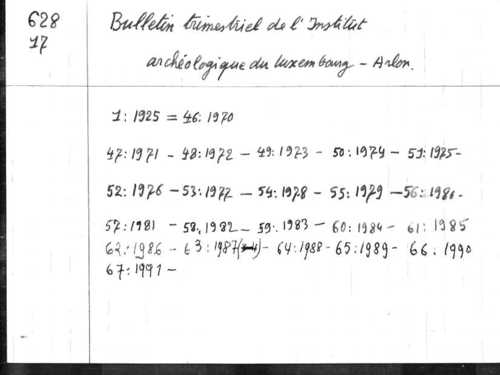 628
17
Bulletin trimestriel de l'Institut
archéologique du Luxembourg - Arlon.
1: 1925 = 46: 1970
47: 1971 - 48: 1972 - 49: 1973 - 50: 1974 - 51: 1975 -
52: 1976 - 53: 1977 - 54: 1978 - 55: 1979 - 56: 1980 -
57: 1981 - 58: 1982 - 59: 1983 - 60: 1984 - 61: 1985
62: 1986 - 63: 1987 - 64: 1988 - 65: 1989 - 66: 1990
67: 1991 -